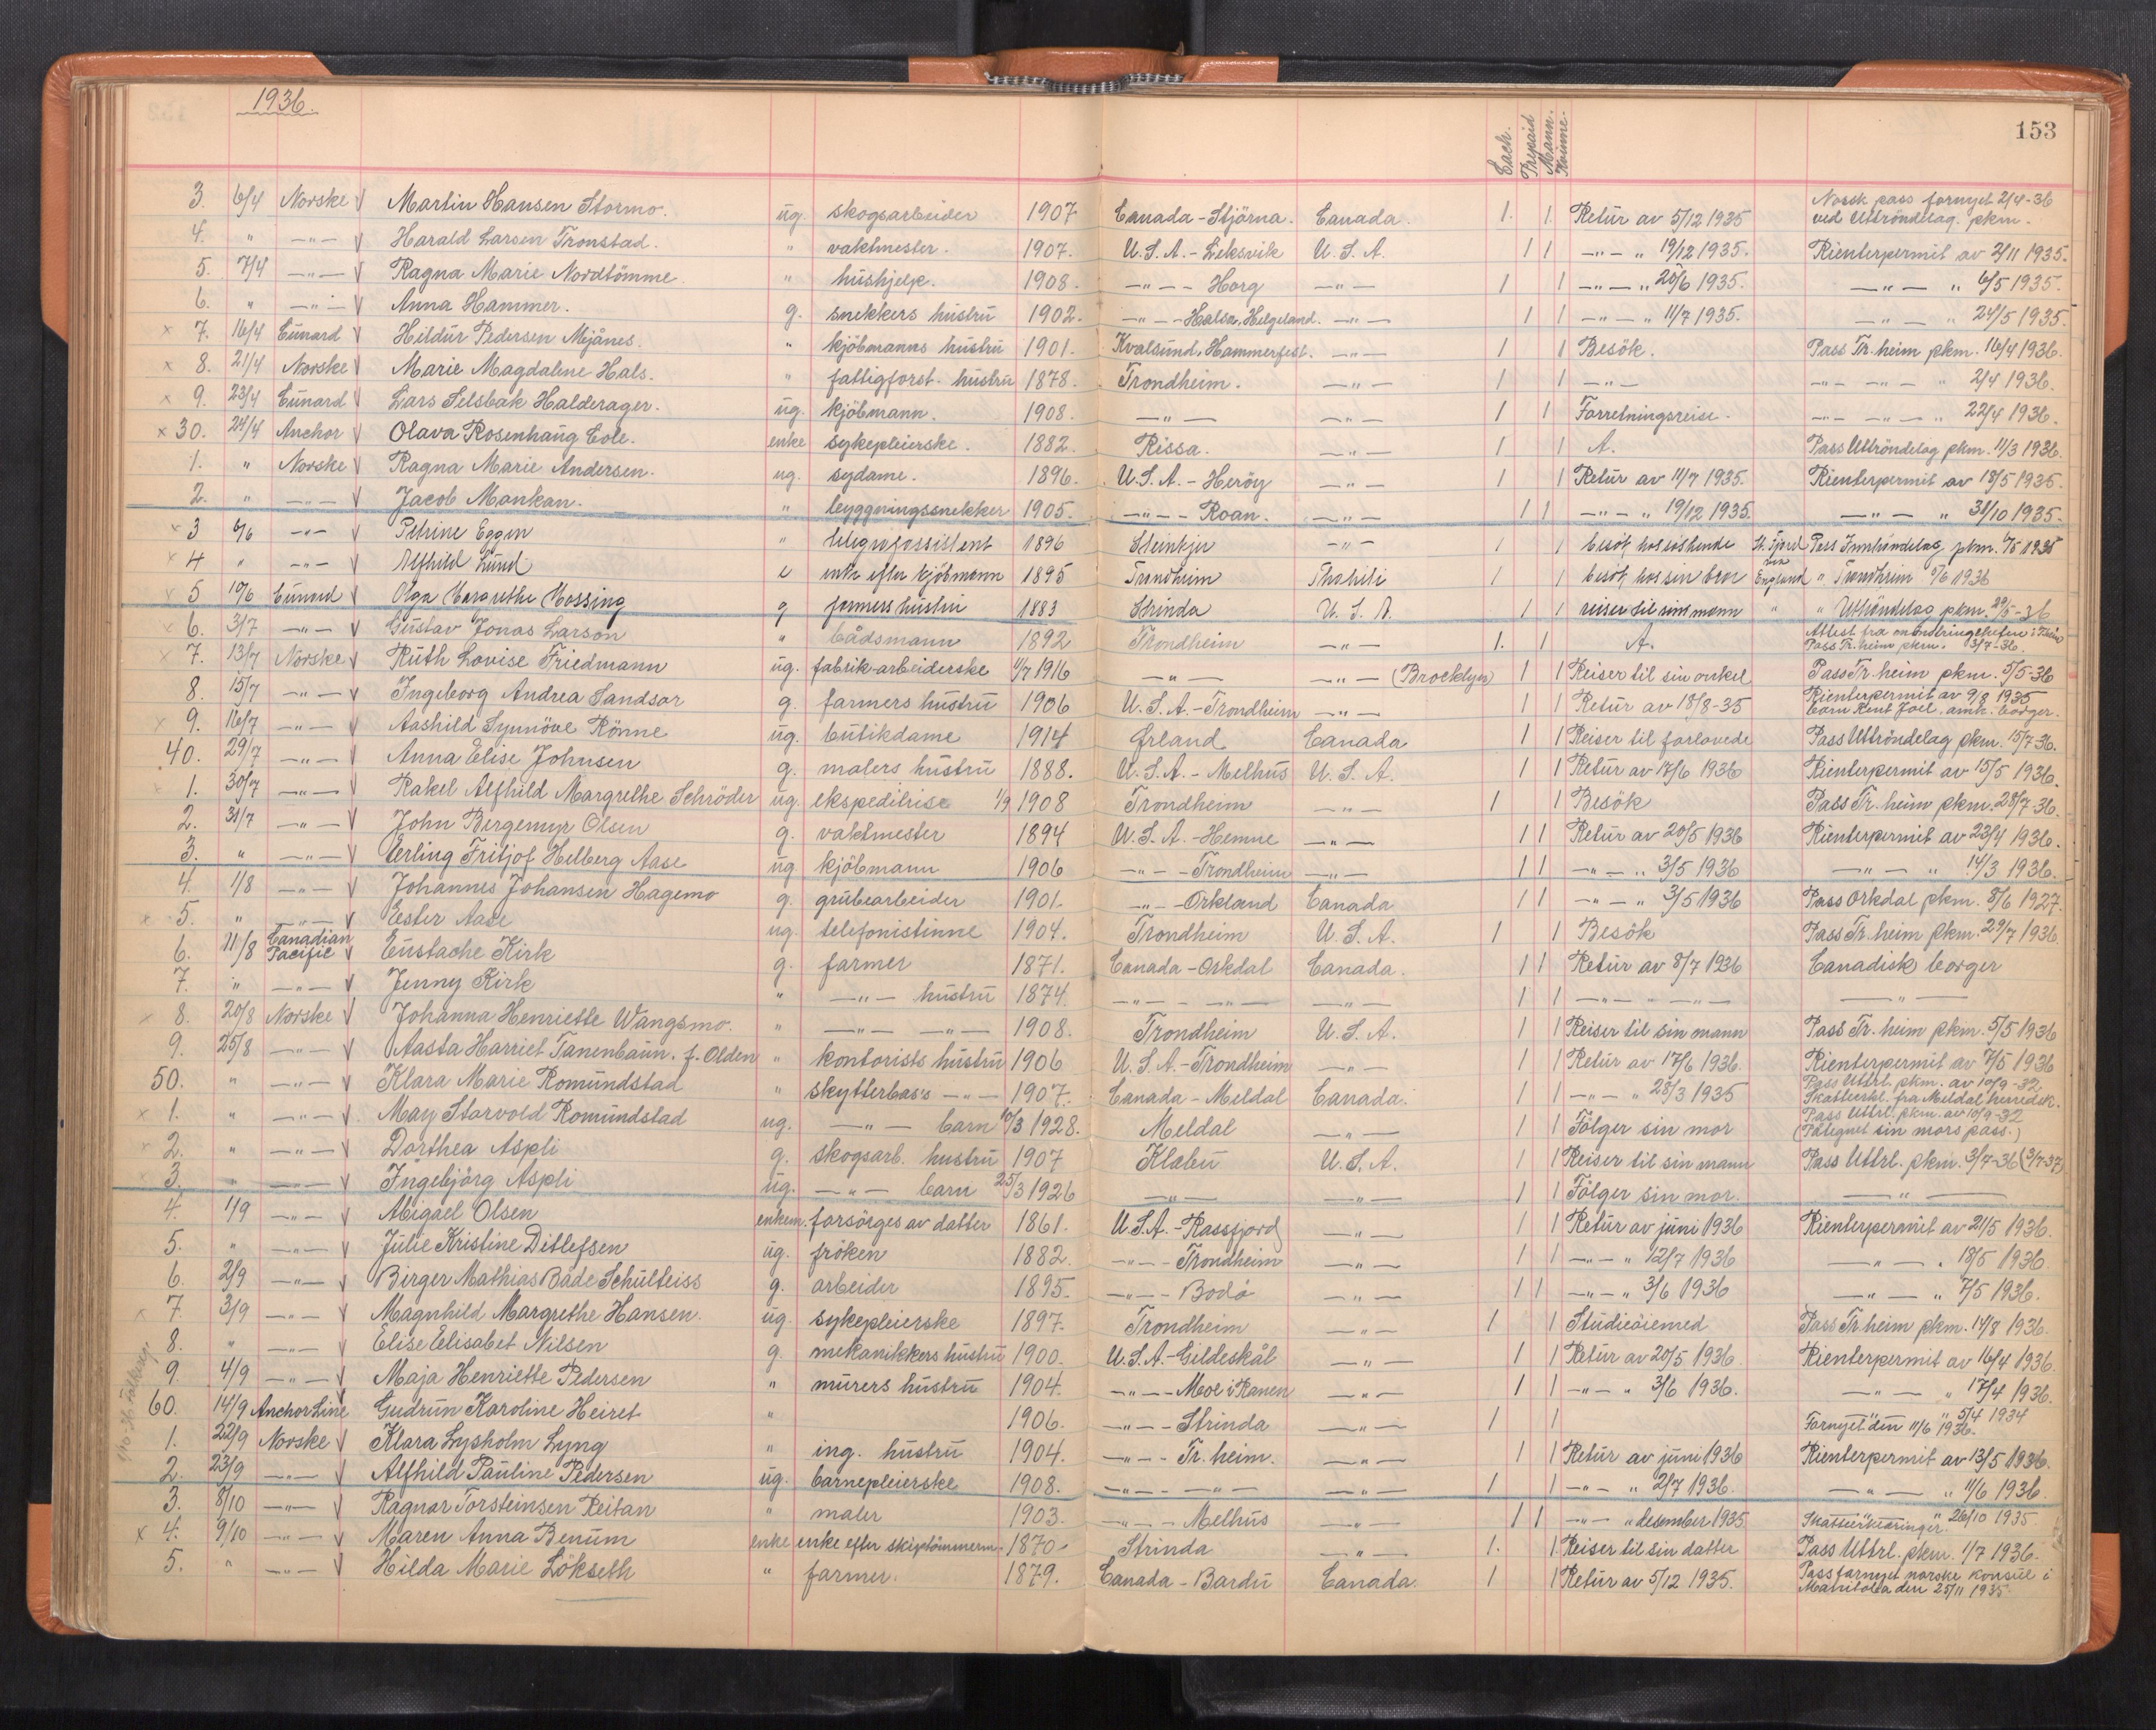 1936.
153
Cach. Prepaid Mann. Kvinne.
3. 6/4 Norske V Martin Hansen Stormo. ug. skogsarbeider 1907 Canada - Stjörna. Canada. 1. 1. Retur av 5/12 1935 Norsk pass fornyet 2/4-36 ved Uttröndelag. pkm.
4. " —"— V Harald Larsen Tronstad. " vaktmester. 1907. U.S.A. - Leksvik U.S.A. 1 1 —"— " 19/12 1935. Rienterpermit av 2/11 1935.
5. 7/4 —"— V Ragna Marie Nordtömme " hushjelp. 1908. —"— - Horg —"— 1 1 —"— " 20/6 1935. —"— " 6/5 1935.
6. " —"— V Anna Hammer. g. snekkers hustru 1902. —"— - Halsa, Helgeland. —"— 1 1 —"— " 11/7 1935. —"— " 24/5 1935.
x 7. 16/4 Cunard V Hildur Pedersen Mjånes. " kjöbmanns hustru 1901. Kvalsund, Hammerfest. —"— 1 1 Besök. Pass Tr.heim pkm. 16/4 1936.
x 8. 21/4 Norske V Marie Magdalene Hals. " fattigforst. hustru 1878. Trondheim. —"— 1 1 —"— —"— —"— " 2/4 1936.
x 9. 23/4 Cunard V Lars Selsbak Halderager. ug. kjöbmann. 1908. —"— —"— 1 1 Forretningsreise. —"— —"— " 22/4 1936.
x 30. 24/4 Anchor V Olava Rosenhaug Cole. enke sykepleierske. 1882. Rissa. —"— 1 1 A. Pass Uttröndelag pkm. 11/3 1936.
1. " Norske V Ragna Marie Andersen. ug. sydame. 1896. U.S.A. - Heröy —"— 1 1 Retur av 11/7 1935. Rienterpermit av 18/5 1935.
2. " —"— V Jacob Mankan. " byggningssnekker 1905. —"— - Roan. —"— 1 1 —"— " 19/12 1935. —"— " 31/10 1935.
x 3 6/6 —"— Petrine Eggen " telegrafassistent 1896 Steinkjer —"— 1 1 besök hos söskende Pass Inntröndelag pkm.
x 4 " —"— Alfhild Lund e enke efter kjöbmann 1895 Trondheim Thahiti 1 1 besök hos sin bror England " Trondheim 5/6 1936
x 5 10/6 Cunard V Olga Margrethe Mossing g farmers hustru 1883 Strinda U.S.A. 1 1 reiser til sin mann " " Uttröndelag pkm. 29/5-36
x 6. 3/7 —"— V Gustav Jonas Larson " bådsmann 1892 Trondheim —"— 1. 1 A. Attest fra mönstringschefen i Tr.heim Pass Tr.heim pkm. 3/7-36.
x 7. 13/7 Norske V Ruth Lovise Friedmann ug. fabrik-arbeiderske 11/7 1916 —"— —"— (Brocklyn) 1 1 Reiser til sin onkel Pass Tr.heim pkm. 5/5-36
8. 15/7 —"— V Ingeborg Andrea Sandsor g. farmers hustru 1906 U.S.A. - Trondheim —"— 1 1 Retur av 18/8-35 Rienterpermit av 9/8 1935 barn Kent Joel. amk. borger.
x 9. 16/7 —"— V Aashild Synnöve Rönne ug. butikdame 1914 Örland Canada 1 1 Reiser til forlovede Pass Uttröndelag pkm. 15/7-36.
40. 29/7 —"— V Anna Elise Johnsen g. malers hustru 1888. U.S.A. - Melhus U.S.A. 1 1 Retur av 17/6 1936 Rienterpermit av 15/5 1936.
x 1. 30/7 —"— V Rakel Alfhild Margrethe Schröder ug. ekspeditrise 1/9 1908 Trondheim —"— 1 1 Besök Pass Tr.heim pkm. 28/7-36.
2. 31/7 —"— V John Bergemyr Olsen g. vaktmester 1894 U.S.A. - Hemne —"— 1 1 Retur av 20/5 1936 Rienterpermit av 23/4 1936.
3. " —"— V Erling Fritjof Helberg Aase ug kjöbmann 1906 —"— - Trondheim —"— 1 1 —"— " 3/5 1936 —"— " 14/3 1936.
4. 1/8 —"— V Johannes Johansen Hagemo g. grubearbeider 1901. —"— - Orkland Canada 1 1 —"— " 3/5 1936 Pass Orkdal pkm. 8/6 1927.
x 5. " —"— V Ester Aase ug. telefonistinne 1904. Trondheim U.S.A. 1 1 Besök Pass Tr.heim pkm. 29/7 1936
6. 11/8 Canadian Pacific V Eustache Kirk g. farmer 1871. Canada - Orkdal Canada. 1 1 Retur av 8/7 1936 Canadisk borger
7. " —"— V Jenny Kirk " —"— hustru 1874. —"— - —"— —"— 1 1 —"— " —"— —"—
x 8. 20/8 Norske V Johanna Henriette Wangsmo. " —"— —"— 1908. Trondheim U.S.A. 1 1 Reiser til sin mann Pass Tr.heim pkm. 5/5 1936
9. 25/8 —"— V Aasta Harriet Tanenbaun. f. Olden " kontorists hustru 1906 U.S.A. - Trondheim —"— 1 1 Retur av 17/6 1936. Rienterpermit av 7/5 1936
50. " —"— V Klara Marie Romundstad " skytterbas's —"— 1907. Canada - Meldal Canada. 1 1 —"— " 28/3 1935 Pass Uttrl. pkm. av 10/9-32. Skatteerkl. fra Meldal herredsk.
x 1. " —"— V May Storvold Romundstad ug. —"— barn 10/3 1928. Meldal —"— 1 1 Fölger sin mor Pass Uttrl. pkm. av 10/9-32 (Påtegnet sin mors pass.)
x 2. " —"— V Dorthea Aspli g. skogsarb. hustru 1907 Klæbu U.S.A. 1 1 Reiser til sin mann Pass Uttrl. pkm. 3/7-36 (3/7-37)
x 3. " —"— V Ingebjörg Aspli ug. —"— barn 25/3 1926 —"— —"— 1 1 Fölger sin mor. —"—
4. 1/9 —"— V Abigael Olsen enkem. forsörges av datter 1861. U.S.A. - Rassfjord —"— 1 1 Retur av juni 1936 Rienterpermit av 21/5 1936.
5. " —"— V Julie Kristine Ditlefsen ug. fröken 1882. —"— - Trondheim —"— 1 1 —"— " 12/7 1936 —"— " 18/5 1936
6. 2/9 —"— V Birger Mathias Bade Schulteiss g. arbeider 1895. —"— - Bodö —"— 1 1 —"— " 3/6 1936 —"— " 7/5 1936.
x 7. 3/9 —"— V Magnhild Margrethe Hansen. ug. sykepleierske 1897. Trondheim —"— 1 1 Studieöiemed Pass Tr.heim pkm. 14/8 1936.
8. " —"— Elise Elisabet Nilsen g. mekanikkers hustru 1900. U.S.A. - Gildeskål —"— 1 1 Retur av 20/5 1936. Rienterpermit av 16/4 1936.
9. 4/9 —"— V Maja Henriette Pedersen " murers hustru 1904. —"— - Moe i Ranen —"— 1 1 —"— " 3/6 1936. —"— " 17/4 1936.
60. 14/9 Anchor Line Gudrun Karoline Heiret " 1906. —"— - Strinda —"— 1 1 —"— " 5/4 1934 Fornyet den 11/6 1936.
1. 22/9 Norske V Klara Lysholm Lyng " ing. hustru 1904. —"— - Tr.heim. —"— 1 1 Retur av juni 1936 Rienterpermit av 13/5 1936.
2. 23/9 —"— V Alfhild Pauline Pedersen ug. barnepleierske 1908. —"— - —"— —"— 1 1 —"— " 2/7 1936. —"— " 11/6 1936.
3. 8/10 —"— V Ragnar Torsteinsen Reitan " maler 1903. —"— - Melhus —"— 1 1 —"— " desember 1935 —"— " 26/10 1935. Skatteerklæringer.
x 4. 9/10 —"— V Maren Anna Benum enke enke efter skiptömmerm. 1870. Strinda —"— 1. 1. Reiser til sin datter Pass Uttrl. pkm. 1/7 1936.
5. " —"— V Hilda Marie Lökseth " farmer. 1879. Canada - Bardu Canada. 1 1 Retur av 5/12 1935. Pass fornyet norske konsul i Manitoba den 25/11 1935